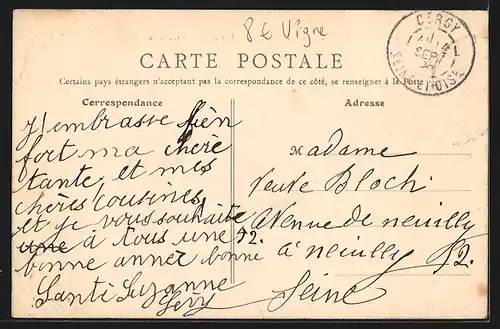 8€ Vigne
CERGY
SEPT
SEINE-ET-OISE
CARTE POSTALE
Certains pays étrangers n'acceptant pas la correspondance de ce côté, se renseigner à la Poste
Correspondance
Adresse
J'embrasse bien
fort ma chère
tante et mes
chères cousines,
et je vous souhaite
une à tous une
bonne anner bonne
Santé Suzanne
Levy
Madame
Veuve Bloch
72. Avenue de neuilly
à neuilly 72.
Seine